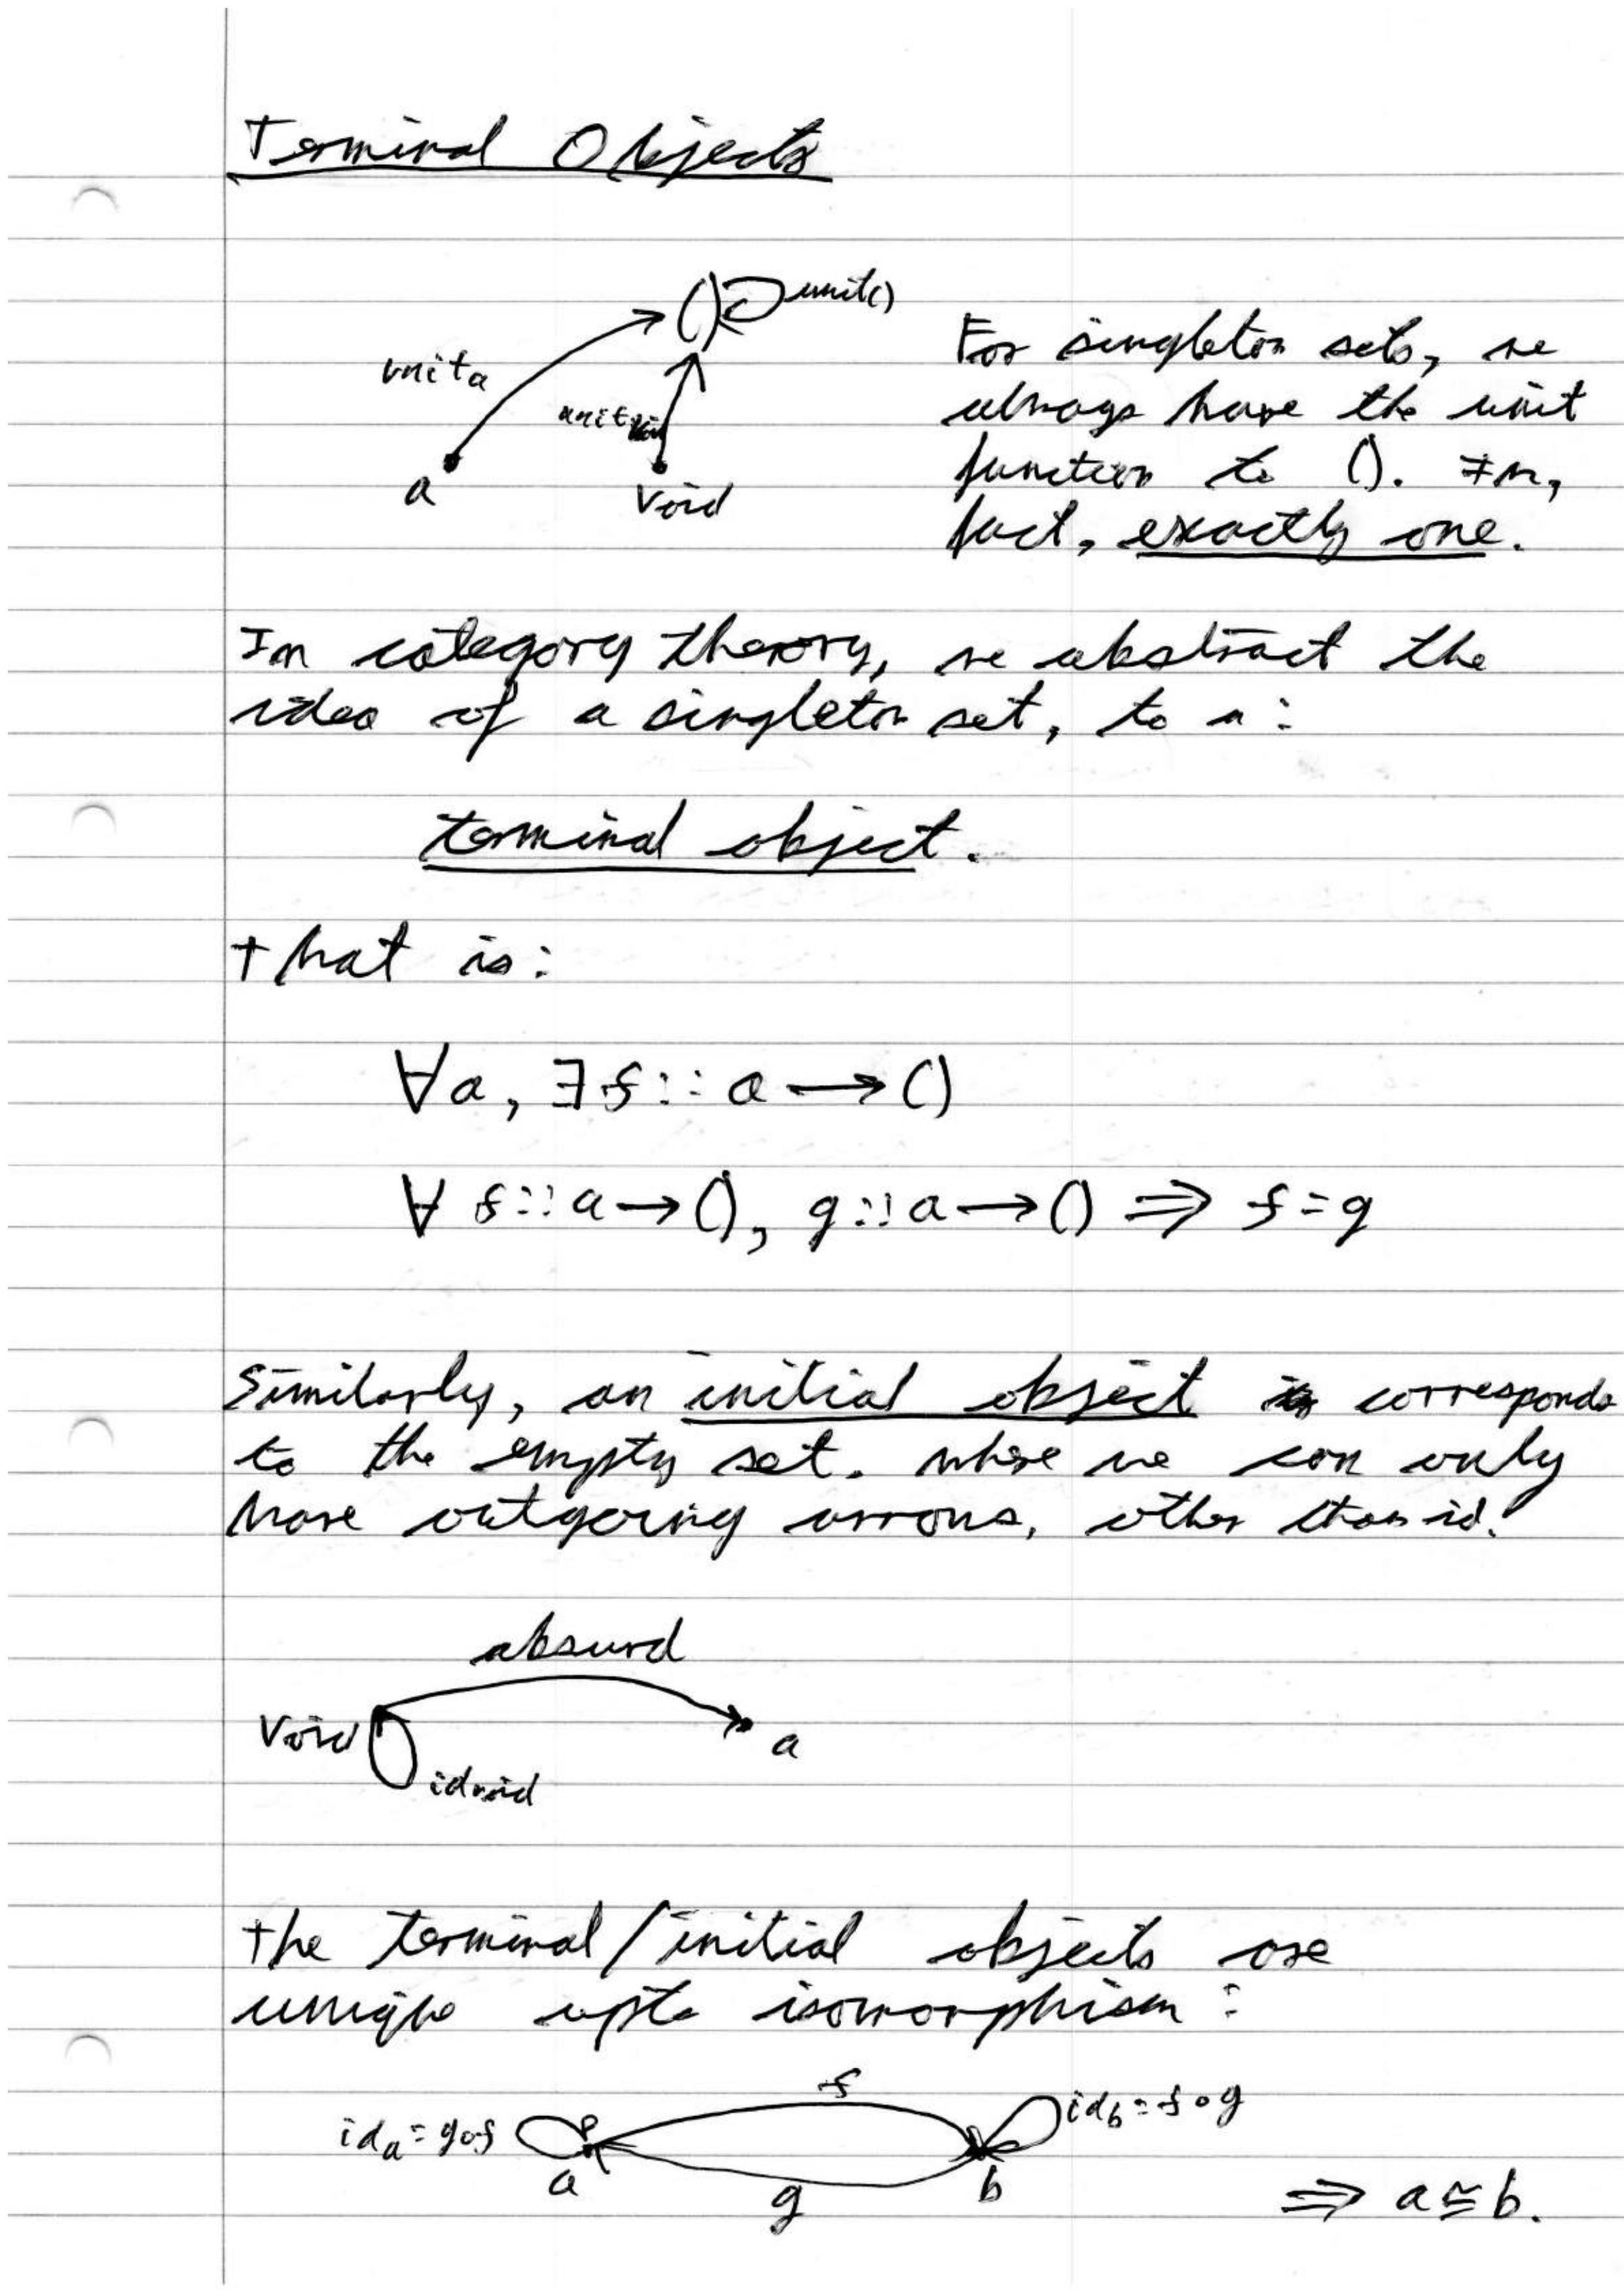 Terminal Objects
unit()
()
unit a
unit void
a
Void
For singleton sets, we
always have the unit
function to (). In,
fact, exactly one.
In category theory, we abstract the
idea of a singleton set, to a:
terminal object.
That is:
∀a, ∃f :: a → ()
∀ f :: a → (), g :: a → () ⇒ f = g
Similarly, an initial object corresponds
to the empty set. where we can only
have outgoing arrows, other than id.
absurd
Void
a
id void
The terminal/initial objects are
unique upto isomorphism:
f
id_a = g∘f
id_b = f∘g
a
g
b
⇒ a ≅ b.